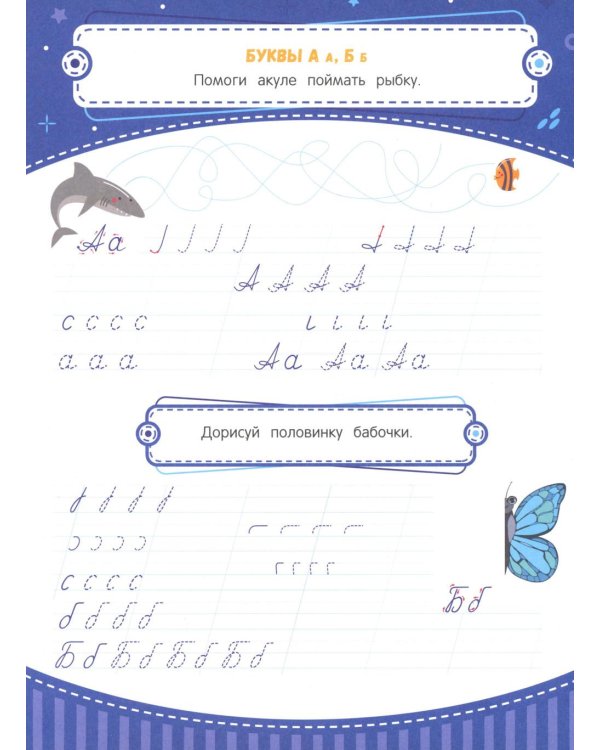 БУКВЫ А а, Б б
Помоги акуле поймать рыбку.
Аа
А А А А
с с с с
а а а Аа Аа Аа
Дорисуй половинку бабочки.
с с с с
Бб
б б б б
Бб Бб Бб Бб